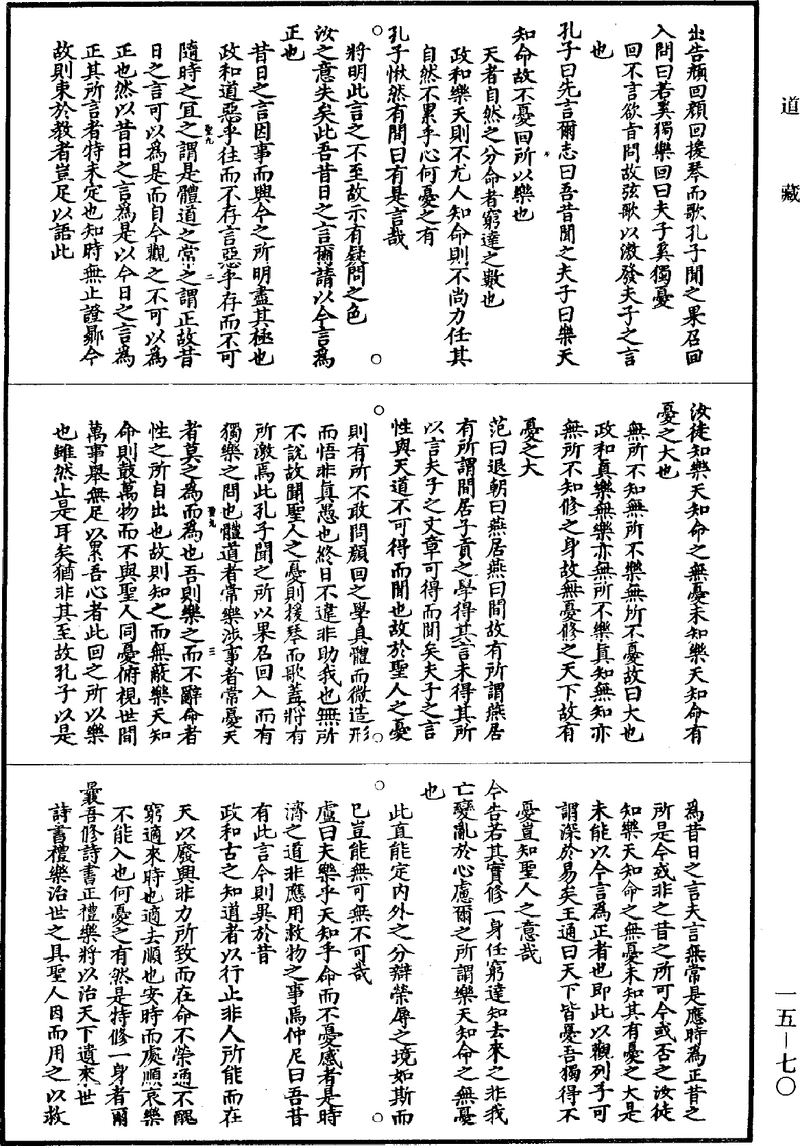 道藏
出告顏回顏回援琴而歌孔子聞之果召回
入問曰若奚獨樂回曰夫子奚獨憂
回不言欲旨問故弦歌以激發夫子之言
也
孔子曰先言爾志曰吾昔聞之夫子曰樂天
知命故不憂回所以樂也
天者自然之分命者窮達之數也
政和樂天則不尤人知命則不尚力任其
自然不累乎心何憂之有
孔子愀然有間曰有是言哉
將明此言之不至故示有疑問之色
汝之意失矣此吾昔日之言爾請以今言爲
正也
昔日之言因事而興今之所明盡其極也
政和道惡乎往而不存言惡乎存而不可
隨時之宜之謂是體道之常之謂正故昔
日之言可以爲是而自今觀之不可以爲
正也然以昔日之言爲是以今日之言爲
正其所言者特未定也知時無止證曏今
故則束於教者豈足以語此
汝徒知樂天知命之無憂未知樂天知命有
憂之大也
無所不知無所不樂無所不憂故曰大也
政和真樂無樂亦無所不樂真知無知亦
無所不知修之身故無憂修之天下故有
憂之大
范曰退朝曰燕居燕曰閒故有所謂燕居
有所謂閒居子貢之學得其言未得其所
以言夫子之文章可得而聞矣夫子之言
性與天道不可得而聞也故於聖人之憂
則有所不敢問顏回之學具體而微造形
而悟非真愚也終日不違非助我也無所
不說故聞聖人之憂則援琴而歌蓋將有
所激焉此孔子聞之所以果召回入而有
獨樂之問也體道者常樂涉事者常憂天
者莫之爲而爲也吾則樂之而不辭命者
性之所自出也故則知之而無蔽樂天知
命則鼓萬物而不與聖人同憂俯視世間
萬事舉無足以累吾心者此回之所以樂
也雖然止是耳矣猶非其至故孔子以是
爲昔日之言夫言無常是應時爲正昔之
所是今或非之昔之所可今或否之汝徒
知樂天知命之無憂未知其有憂之大是
未能以今言爲正者也即此以觀列子可
謂深於易矣王通曰天下皆憂吾獨得不
憂豈知聖人之意哉
今告若其實修一身任窮達知去來之非我
亡變亂於心慮爾之所謂樂天知命之無憂
也
此直能定內外之分辯榮辱之境如斯而
已豈能無可無不可哉
盧曰夫樂乎天知乎命而不憂慼者是時
濟之道非應用救物之事焉仲尼曰吾昔
有此言今則異於昔
政和古之知道者以行止非人所能而在
天以廢興非力所致而在命不榮通不醜
窮適來時也適去順也安時而處順哀樂
不能入也何憂之有然是特修一身者爾
曩吾修詩書正禮樂將以治天下遺來世
詩書禮樂治世之具聖人因而用之以救
聖九 二
聖九 三
一五—七〇